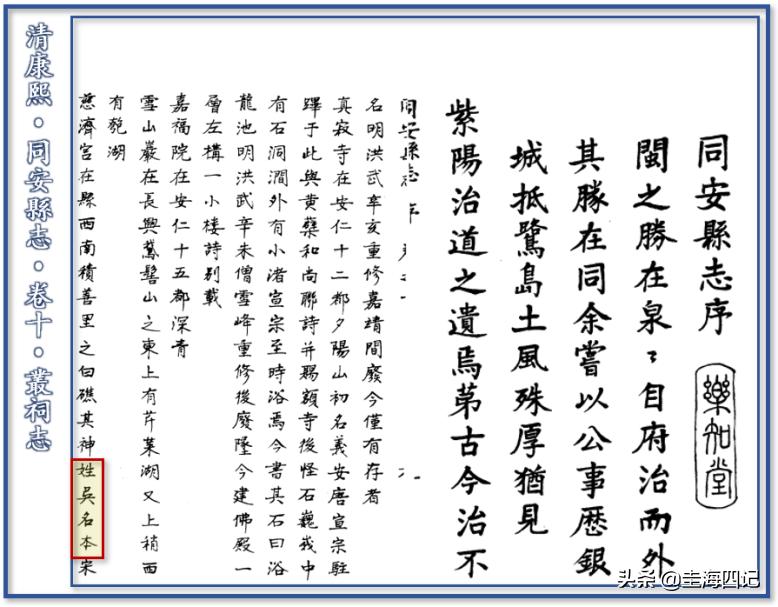 清康熙·同安縣志·卷十·叢祠志
同安縣志序
樂知堂
閩之勝在泉泉自府治而外
其勝在同余嘗以公事歷銀
城抵鷺島土風殊厚猶見
紫陽治道之遺焉苐古今治不
同安縣志
名明洪武辛亥重修嘉靖間廢今僅有存者
真寂寺在安仁十二都夕陽山初名義安唐宣宗駐
蹕于此與黃蘗和尚聯詩并賜額寺後怪石巍峩中
有石洞澗外有小渚宣宗至時浴焉今書其石曰浴
龍池明洪武辛未僧雪峰重修後廢隆今建佛殿一
層左構一小樓詩别載
嘉福院在安仁十五都深青
雪山巖在長興鵞髻山之東上有芹菜湖又上稍西
有
湖
慈濟宮在縣西南積善里之白礁其神姓吳名本宋
头条@圭海四记